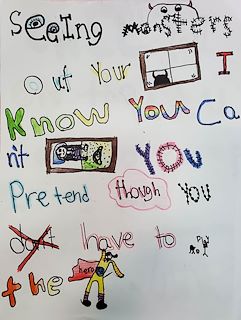 SeeIng monsters
out Your I
Know You Ca
n't YOU
Pretend though you
don't have to
the hero